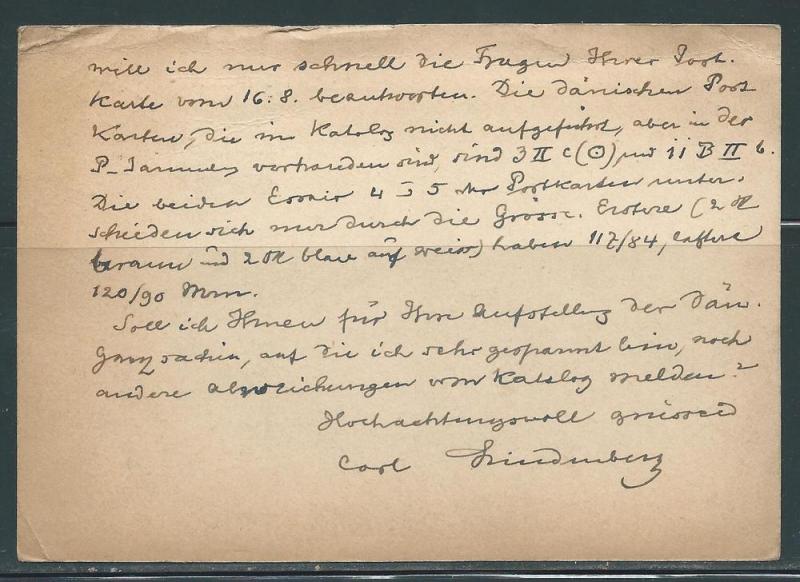 will ich nur schnell die Fragen Ihrer Post-
Karte vom 16.8. beantworten. Die dänischen Post
Karten, die im Katalog nicht aufgeführt, aber in der
P-Sammlg vorhanden sind, sind 3 II c (⊙) und 11 B II b.
Die beiden Essais 4 5 der Postkarten unter-
scheiden sich nur durch die Grösse. Erstere (2
braun und 2 blau auf weiss) haben 117/84, letztere
120/90 Mm.
Soll ich Ihnen für Ihre Aufstellg der Dän.
Ganzsachen, auf die ich sehr gespannt bin, noch
andere abweichungen vom Katalog melden?
Hochachtungsvoll grüssend
Carl Lindenberg